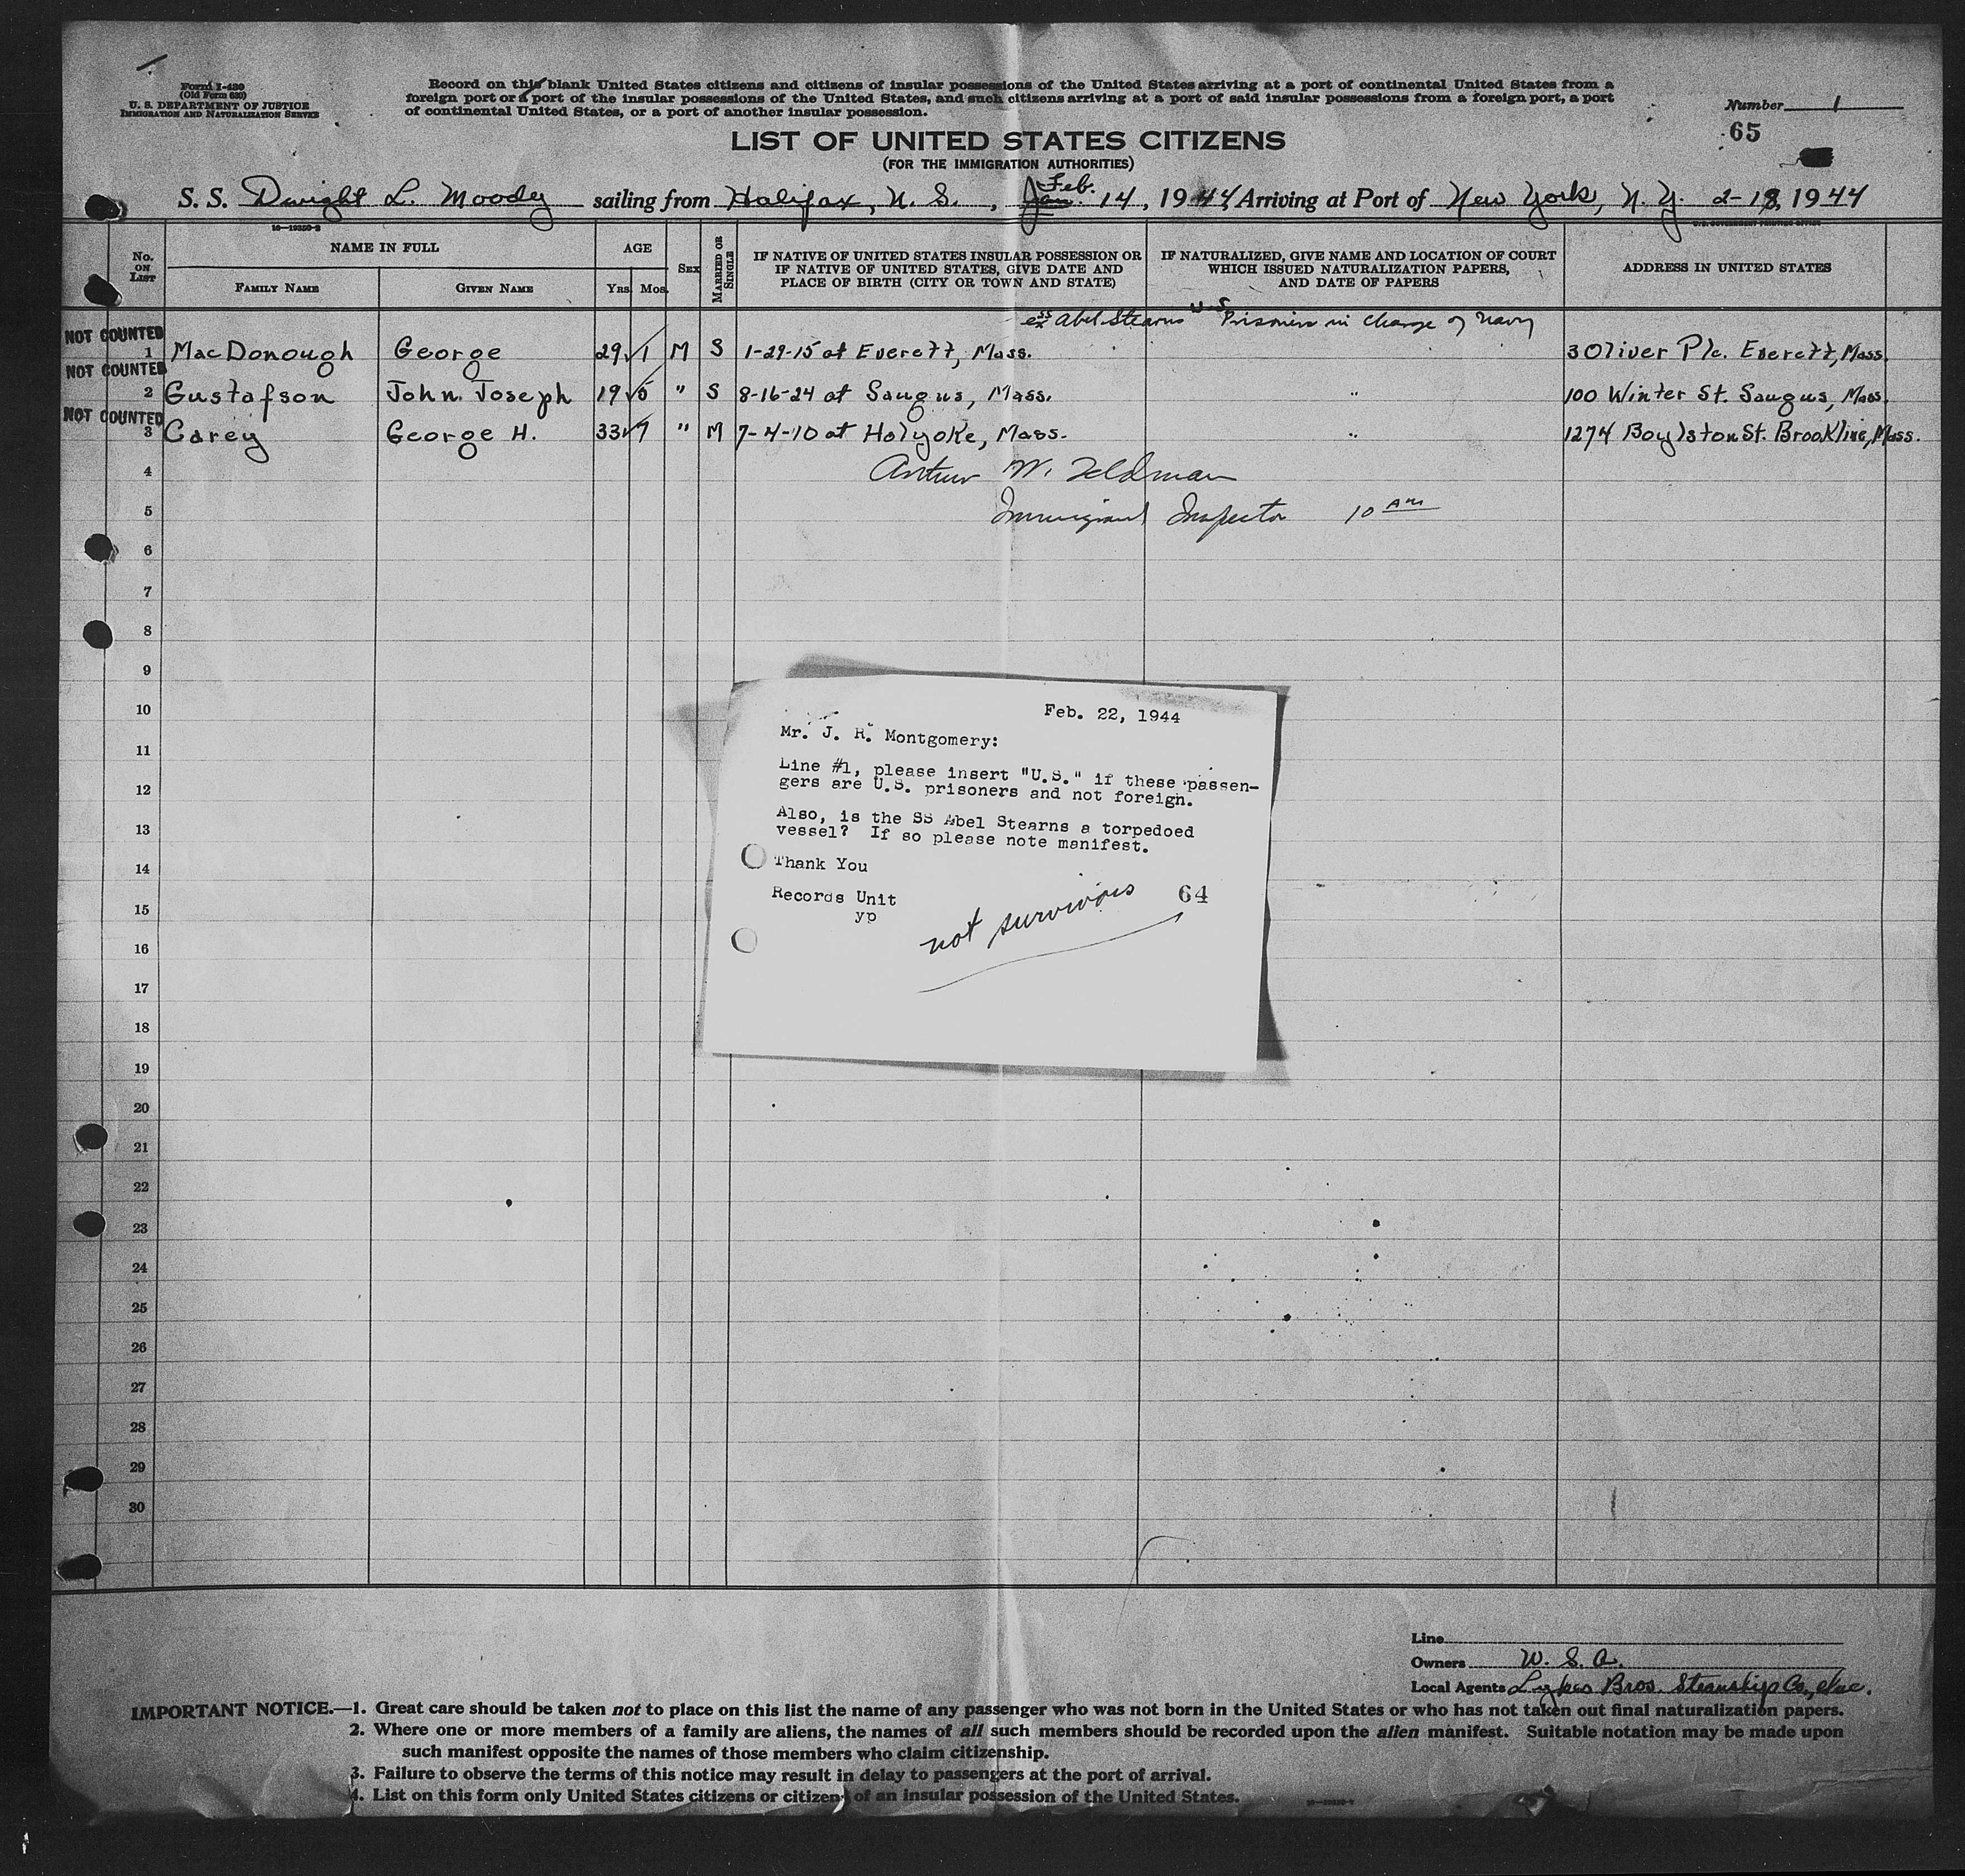 Form I-430
(Old Form 630)
U. S. DEPARTMENT OF JUSTICE
IMMIGRATION AND NATURALIZATION SERVICE
Record on this blank United States citizens and citizens of insular possessions of the United States arriving at a port of continental United States from a
foreign port or a port of the insular possessions of the United States, and such citizens arriving at a port of said insular possessions from a foreign port, a port
of continental United States, or a port of another insular possession.
Number 1
65
LIST OF UNITED STATES CITIZENS
(FOR THE IMMIGRATION AUTHORITIES)
S. S. Dwight L. Moody sailing from Halifax, N. S., Jan. Feb. 14, 1944, Arriving at Port of New York, N. Y. 2-18, 1944
No. ON LIST
NAME IN FULL
FAMILY NAME
GIVEN NAME
AGE
YRS.
MOS.
SEX
MARRIED OR SINGLE
IF NATIVE OF UNITED STATES INSULAR POSSESSION OR
IF NATIVE OF UNITED STATES, GIVE DATE AND
PLACE OF BIRTH (CITY OR TOWN AND STATE)
IF NATURALIZED, GIVE NAME AND LOCATION OF COURT
WHICH ISSUED NATURALIZATION PAPERS,
AND DATE OF PAPERS
ADDRESS IN UNITED STATES
ex SS Abel Stearns U.S. Prisoners in charge of Navy
NOT COUNTED
1 MacDonough George 29 1 M S 1-29-15 at Everett, Mass. 3 Oliver Plc. Everett, Mass.
NOT COUNTED
2 Gustafson John Joseph 19 5 " S 8-16-24 at Saugus, Mass. " 100 Winter St. Saugus, Mass.
NOT COUNTED
3 Carey George H. 33 7 " M 7-4-10 at Holyoke, Mass. " 1274 Boylston St. Brookline, Mass.
4 Arthur W. Feldman
5 Immigrant Inspector 10 AM
6
7
8
9
10
11
12
13
14
15
16
17
18
19
20
21
22
23
24
25
26
27
28
29
30
Feb. 22, 1944
Mr. J. R. Montgomery:
Line #1, please insert "U.S." if these passen-
gers are U.S. prisoners and not foreign.
Also, is the SS Abel Stearns a torpedoed
vessel? If so please note manifest.
Thank You
Records Unit
yp
64
not survivors
Line
Owners W. S. A.
Local Agents Lykes Bros. Steamship Co., Inc.
IMPORTANT NOTICE.—1. Great care should be taken not to place on this list the name of any passenger who was not born in the United States or who has not taken out final naturalization papers.
2. Where one or more members of a family are aliens, the names of all such members should be recorded upon the alien manifest. Suitable notation may be made upon
such manifest opposite the names of those members who claim citizenship.
3. Failure to observe the terms of this notice may result in delay to passengers at the port of arrival.
4. List on this form only United States citizens or citizens of an insular possession of the United States.